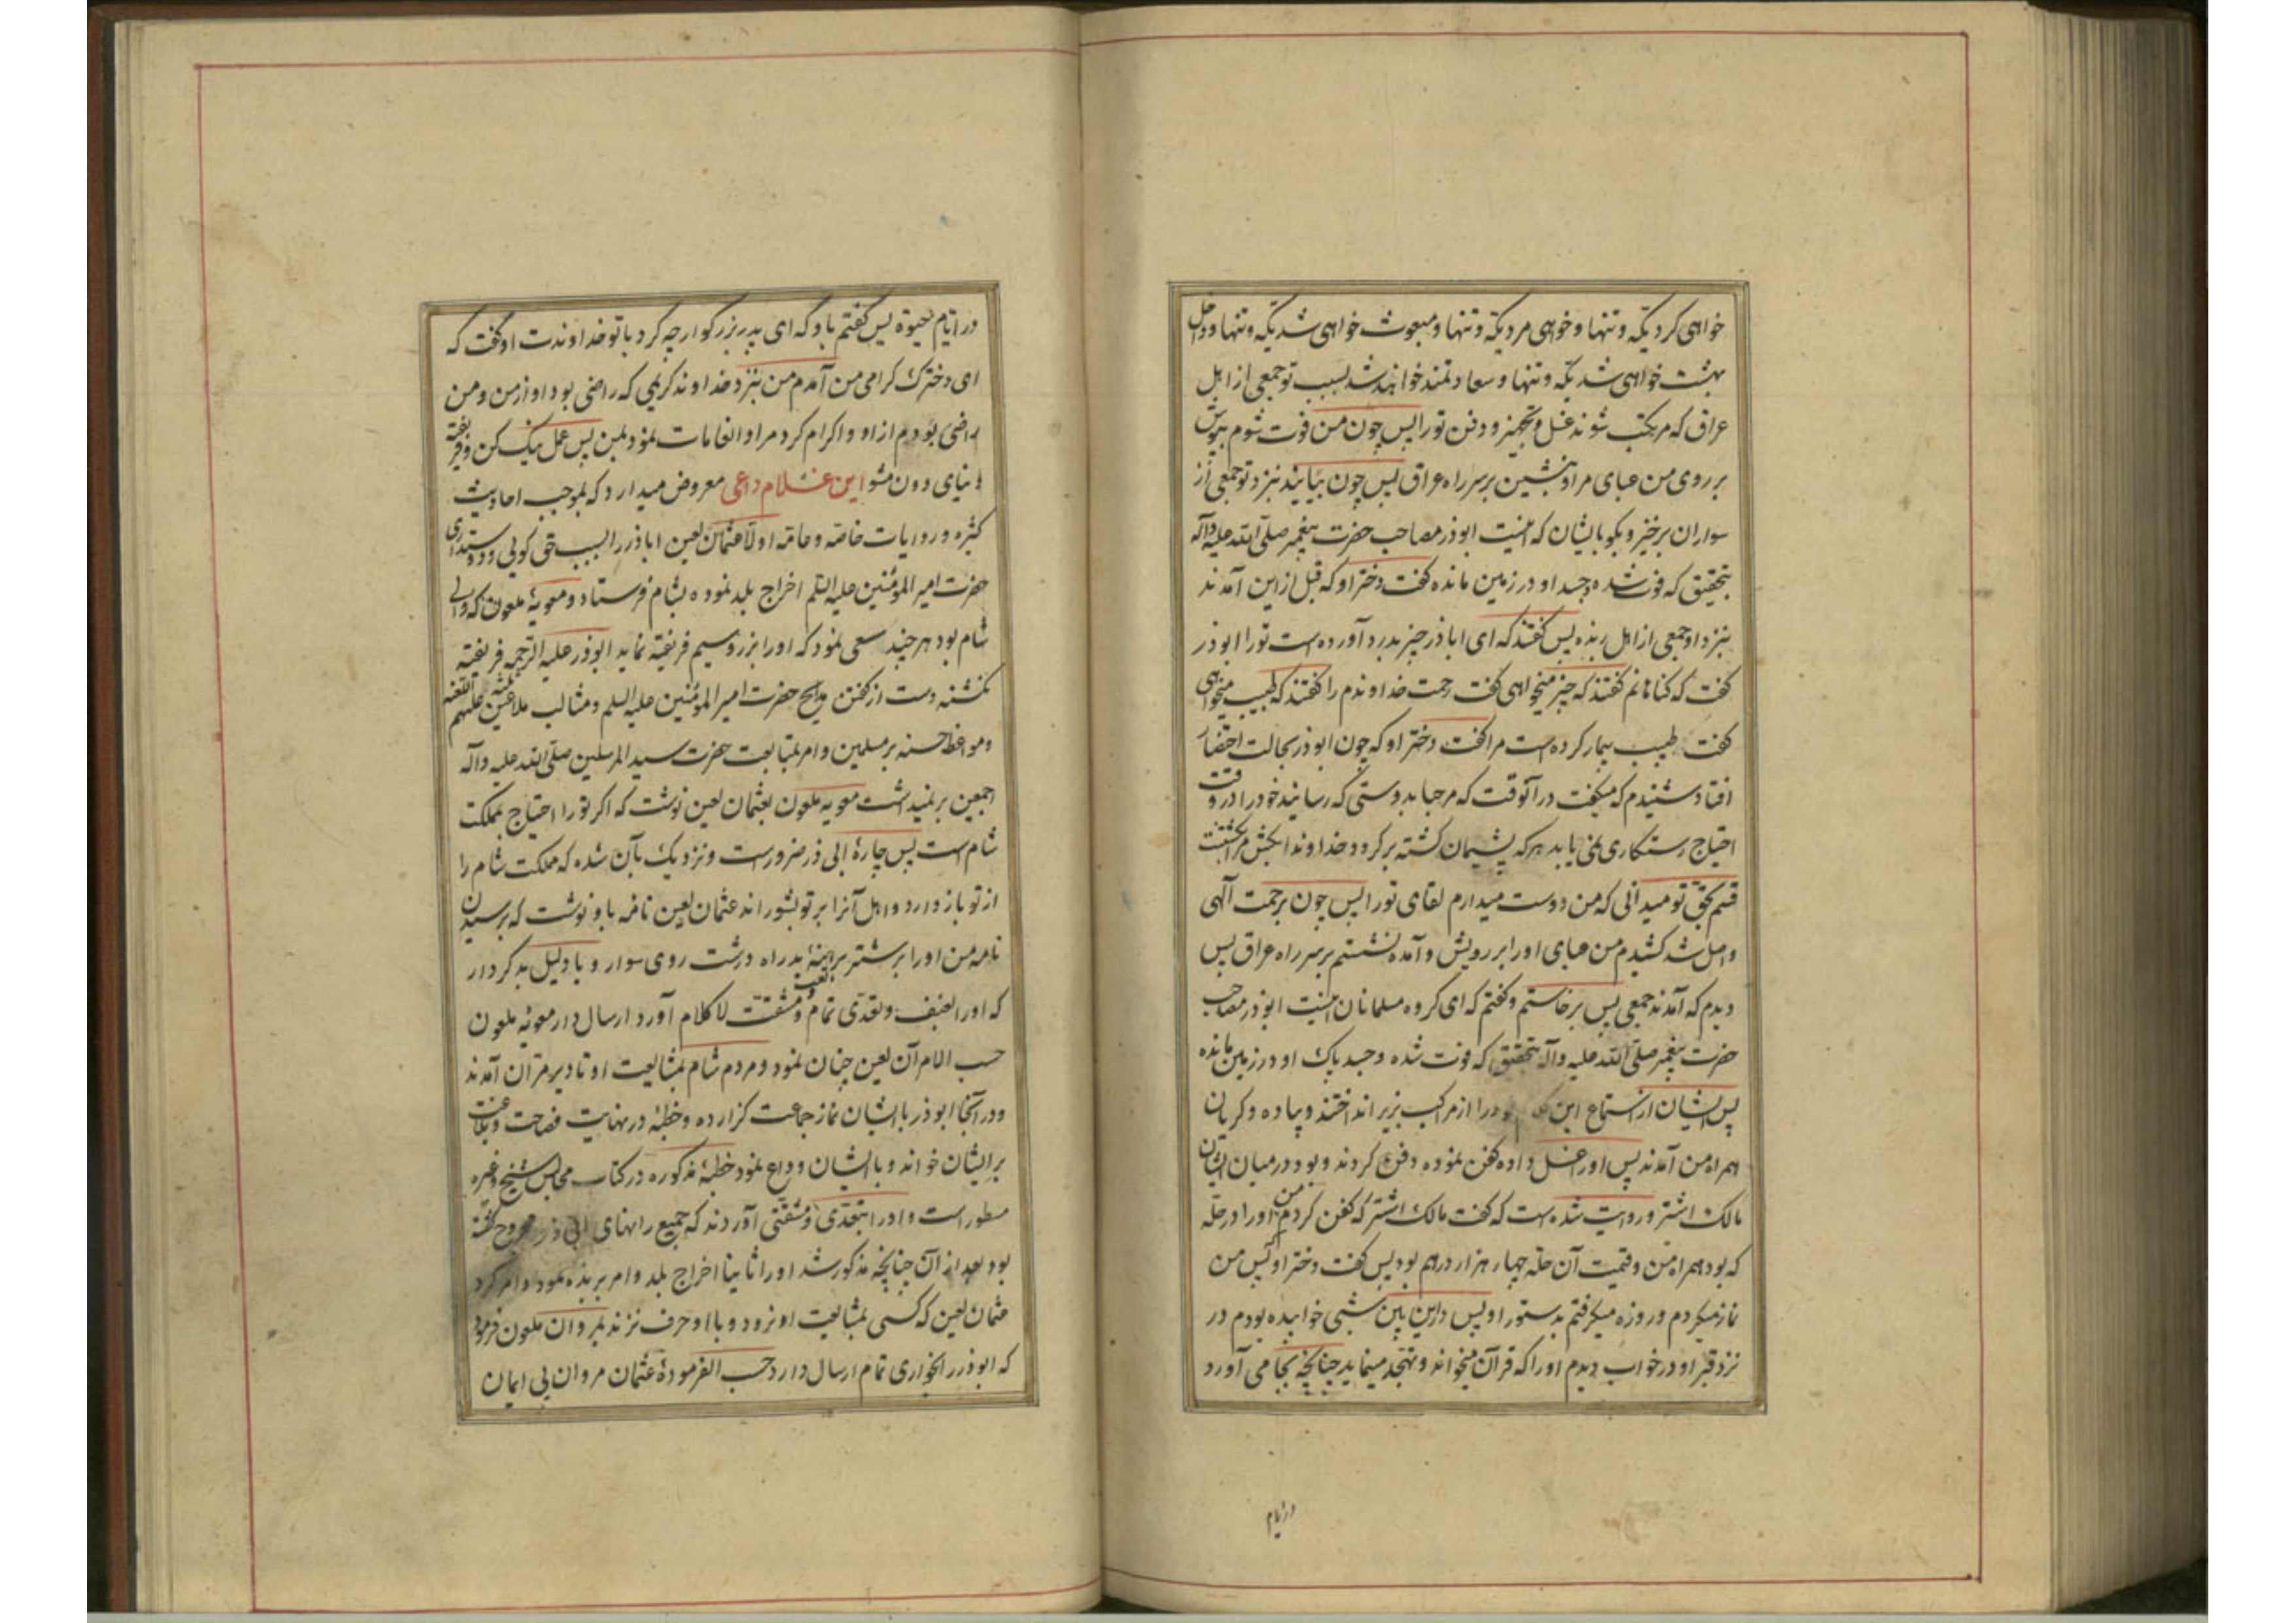 خواهی کرد یکّه و تنها و خواهی مرد یکّه و تنها و مبعوث خواهی شد یکّه و تنها و داخل
بهشت خواهی شد یکّه و تنها و سعادتمند خواهند شد بسبب تو جمعی از اهل
عراق که مرتکب شوند غسل و تجهیز و دفن تو را پس چون من فوت شوم بپوش
بر روی من عبای مرا و بنشین بر سر راه عراق پس چون بیایند نزد تو جمعی از
سواران برخیز و بگو بایشان که اینست ابوذر مصاحب حضرت پیغمبر صلّی الله علیه وآله
بتحقیق که فوت شده و جسد او در زمین مانده گفت دختر او که قبل از این آمدند
بنزد او جمعی از اهل ربذه پس گفتند که ای اباذر چه چیز بدرد آورده است تو را ابوذر
گفت که گناهانم گفتند که چه چیز میخواهی گفت رحمت خداوندم را گفتند که طبیب میخواهی
گفت طبیب بیمار کرده است مرا گفت دختر او که چون ابوذر بحالت احتضار
افتاد شنیدم که میگفت در آنوقت که مرحبا بدوستی که رسانید خود را در وقت
احتیاج رستگاری نمی یابد هر که پشیمان گشته برگردد خداوندا
قسم بحق تو میدانی که من دوست میدارم لقای تو را پس چون برحمت آلهی
واصل شد کشیدم من عبای او را بر رویش و آمده نشستم بر سر راه عراق پس
دیدم که آمدند جمعی پس برخاستم و گفتم که ای گروه مسلمانان اینست ابوذر مصاحب
حضرت پیغمبر صلّی الله علیه وآله بتحقیق که فوت شده و جسد پاک او در زمین مانده
پس ایشان از استماع این خود را از مرکب بزیر انداختند و پیاده و گریان
همراه من آمدند پس او را غسل داده کفن نموده دفن کردند و بود در میان ایشان
مالک اشتر و روایت شده است که گفت مالک اشتر که کفن کردم من او را در حلّه
که بود همراه من و قیمت آن حلّه چهار هزار درهم بود پس گفت دختر او پس من
نماز میکردم و روزه میگرفتم بدستور او پس در این بین شبی خوابیده بودم در
نزد قبر او در خواب دیدم او را که قرآن میخواند و تهجد مینماید چنانچه بجا می آورد
در ایام
در ایّام حیوة پس گفتم باو که ای پدر بزرگوار چه کرد با تو خداوندت او گفت که
ای دخترک گرامی من آمدم من بنزد خداوند کریمی که راضی بود او از من و من
راضی بودم از او و اکرام کرد مرا و انعامات نمود بمن پس عمل نیک کن و فریفته
دنیای دون مشو این غلام داعی معروض میدارد که بموجب احادیث
کثیره و روایات خاصّه و عامّه اولا عثمان لعین اباذر را بسبب حق گوئی و دوستداری
حضرت امیر المؤمنین علیه السلم اخراج بلد نموده بشام فرستاد و معویهٔ ملعون که والی
شام بود هر چند سعی نمود که او را بزر و سیم فریفته نماید ابوذر علیه الرحمه فریفته
نگشته دست از گفتن مدایح حضرت امیر المؤمنین علیه السلم و مثالب ملاعین ثلثه علیهم اللعنه
و مواعظ حسنه بر مسلمین و امر بمتابعت حضرت سید المرسلین صلّی الله علیه وآله
اجمعین بر نمیداشت معویه ملعون بعثمان لعین نوشت که اگر تو را احتیاج بمملکت
شام است پس چارهٔ ابی ذر ضرورست و نزدیک بآن شده که مملکت شام را
از تو باز دارد و اهل آنرا بر تو بشوراند عثمان لعین نامه باو نوشت که برسیدن
نامه من او را بر شتر برهنهٔ بد راه درشت روی سوار و با دلیل بد کردار
که او را بعنف و تعدّی تمام و تعب و مشقّت لا کلام آورد ارسال دار معویهٔ ملعون
حسب الامر آن لعین چنان نمود و مردم شام بمشایعت او تا دیر مرّان آمدند
و در آنجا ابوذر با ایشان نماز جماعت گزارده و خطبهٔ در نهایت فصاحت و بلاغت
بر ایشان خواند و با ایشان وداع نمود خطبهٔ مذکوره در کتاب مجالس شیخ و غیره
مسطور است و او را بتعدّی و مشقتی آوردند که جمیع رانهای ابی ذر مجروح گشته
بود بعد از آن چنانچه مذکور شد او را ثانیا اخراج بلد و امر بربذه نمود و امر کرد
عثمان لعین که کسی بمشایعت او نرود و با او حرف نزند بمروان ملعون فرمود
که ابوذر را بخواری تمام ارسال دارد حسب الفرمودهٔ عثمان مروان بی ایمان